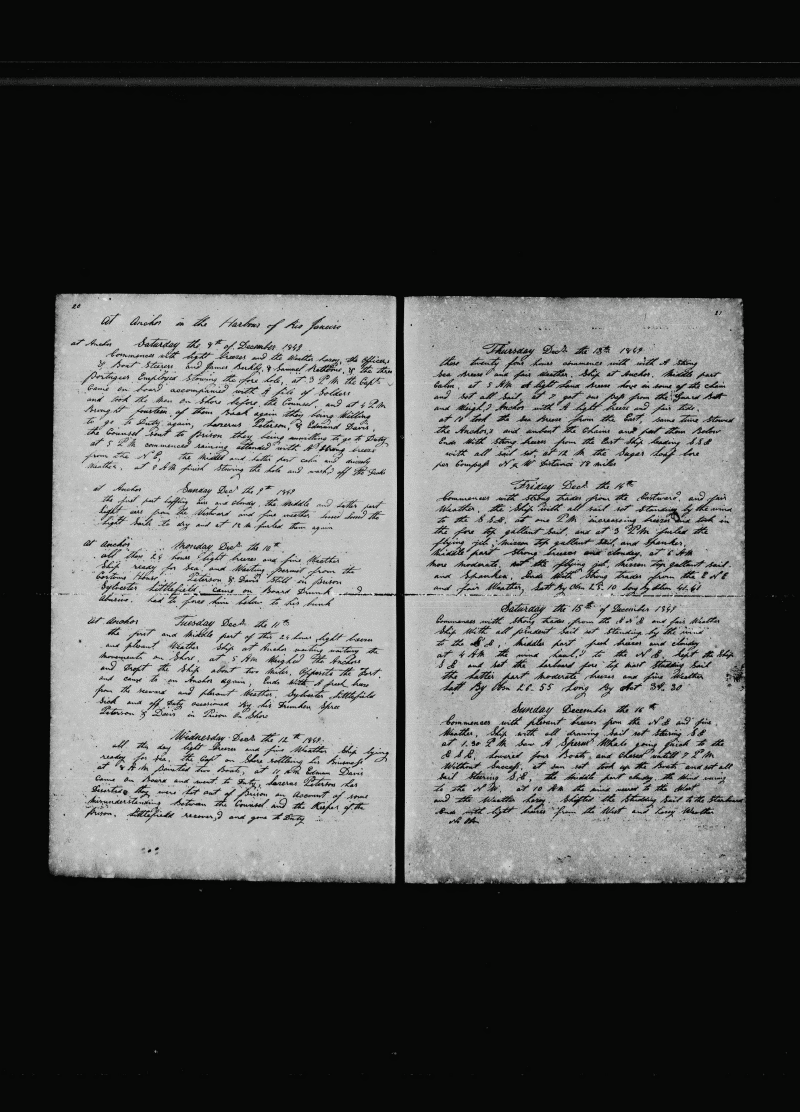 20
At Anchor in the Harbour of Rio Janeiro
at Anchor Saturday the 8th of December 1849
Commences with light breezes and the Weather hazy, the Officers
& Boat Stierers and James Barkly, & Samuel Rathbone, & the three
Portigees Employed Stowing the fore hole, at 3 P.M the Capt
Came on board accompanied with A file of Soldiers
and took the Men on Shore before the Counsel, and at 4 P.M
Brought fourteen of them Back again they being Willing
to go to Duty again, Peterson, & Edmund Davis,
the Counsel Sent to Prison they being unwilling to go to Duty
at 5 P.M commenced raining attended with A Strong breeze
from the N E, the Middle and latter part calm and
Weather, at 8 A.M finish Stowing the hole and wash'd off the Decks
at Anchor Sunday Decr the 9th 1849
the first part baffling airs and cloudy, the Middle and latter part
Light airs from the and fine weather loosed the
Light Sails to dry and at 12 M furled them again
At Anchor Monday Decr the 10th
all these 24 hours light breezes and fine Weather
Ship ready for Sea and Waiting permit from the
Custome House, Peterson & Davis Still in prison
Sylvester Littlefield came on Board Drunk and
Abusive. had to force him below to his bunk
At Anchor Tuesday Decr the 11th
the first and Middle part of this 24 hours light breezes
and plesant Weather Ship at Anchor waiting
movements on Shore, at 5 AM Weighed the Anchors
and Dropt the Ship about two Miles, Opposite the Fort,
and came to an Anchor again, Ends With A fresh breeze
from the seaward and plesant Weather, Sylvester Littlefield
Sick and off Duty occasioned By his Drunken Spree
Peterson & Davis in Prison On Shore
Wednesday Decr the 12th 1849
all this day light breezes and fine Weather Ship lying
ready for Sea, the Capt on Shore settling his Business
at 8 A.M Painted two Boats, at 11 AM Edmun Davis
Came on Board and went to Duty, Peterson has
Deserted they were let out of Prison on Account of some
misunderstanding Between the Counsel and the Keeper of the
prison. Littlefield recover'd and gone to Duty
21
Thursday Decr the 13th 1849
these twenty four hours commence with with A Strong
Sea Breeze and fair Weather, Ship at Anchor. Middle part
Calm, at 5 AM A light Land breeze hove in some of the chain
and set all Sail, at 7 got our Pass from the Guard Boat
and Weigh'd Anchor with A light breeze and fair tide,
at 10 took the Sea Breeze from the East, same time Stowed
the Anchors and unbent the Chains and put them Below
Ends With Strong breezes from the East Ship heading S.S.E
with all sail set, at 12 M the Sugar Loaf bore
per Compass N x W Distance 18 miles
Friday Decr the 14th
Commences with Strong trades from the Eastward, and fair
Weather, the Ship with all sail set Standing by the wind
to the S.S.E, at one P.M increasing breezes and took in
the fore top gallant Sail, and at 3 P.M furled the
flying jib, mizzen top gallant Sail, and Spanker,
Middle part Strong breezes and cloudy, at 6 AM
more moderate, set the flying jib, mizzen top gallant sail
and Spanker, Ends With Strong trades from the E N E
and fair Weather, Latt By Obn 25.10 Long by Chron 41.41
Saturday the 15th of December 1849
Commences with strong trades from the E N E and fair Weather
Ship With all prudent Sail set Standing by the wind
to the S.E. Middle part fresh breezes and cloudy
at 4 AM the wind haul'd to the N E, kept the Ship
S E and set the larboard fore top mast Studding Sail
the latter part moderate breezes and fine Weather
Latt By Obn 26.55 Long By 39.30
Sunday December the 16th
Commences with plesant breezes from the N E and fine
Weather, Ship with all drawing Sail set Stering S E
at 1.30 P.M Saw A Sperm Whale going quick to the
E S E, lowered four Boats, and Chased untill 7 P.M
Without Success, at sun set took up the Boats and set all
Sail Stering S,E, the middle part cloudy, the wind
to the N.W. at 10 AM the wind to the West
and the Weather hazy. Shifted the Studding Sail to the Starboard
Ends with light breezes from the West and hazy Weather